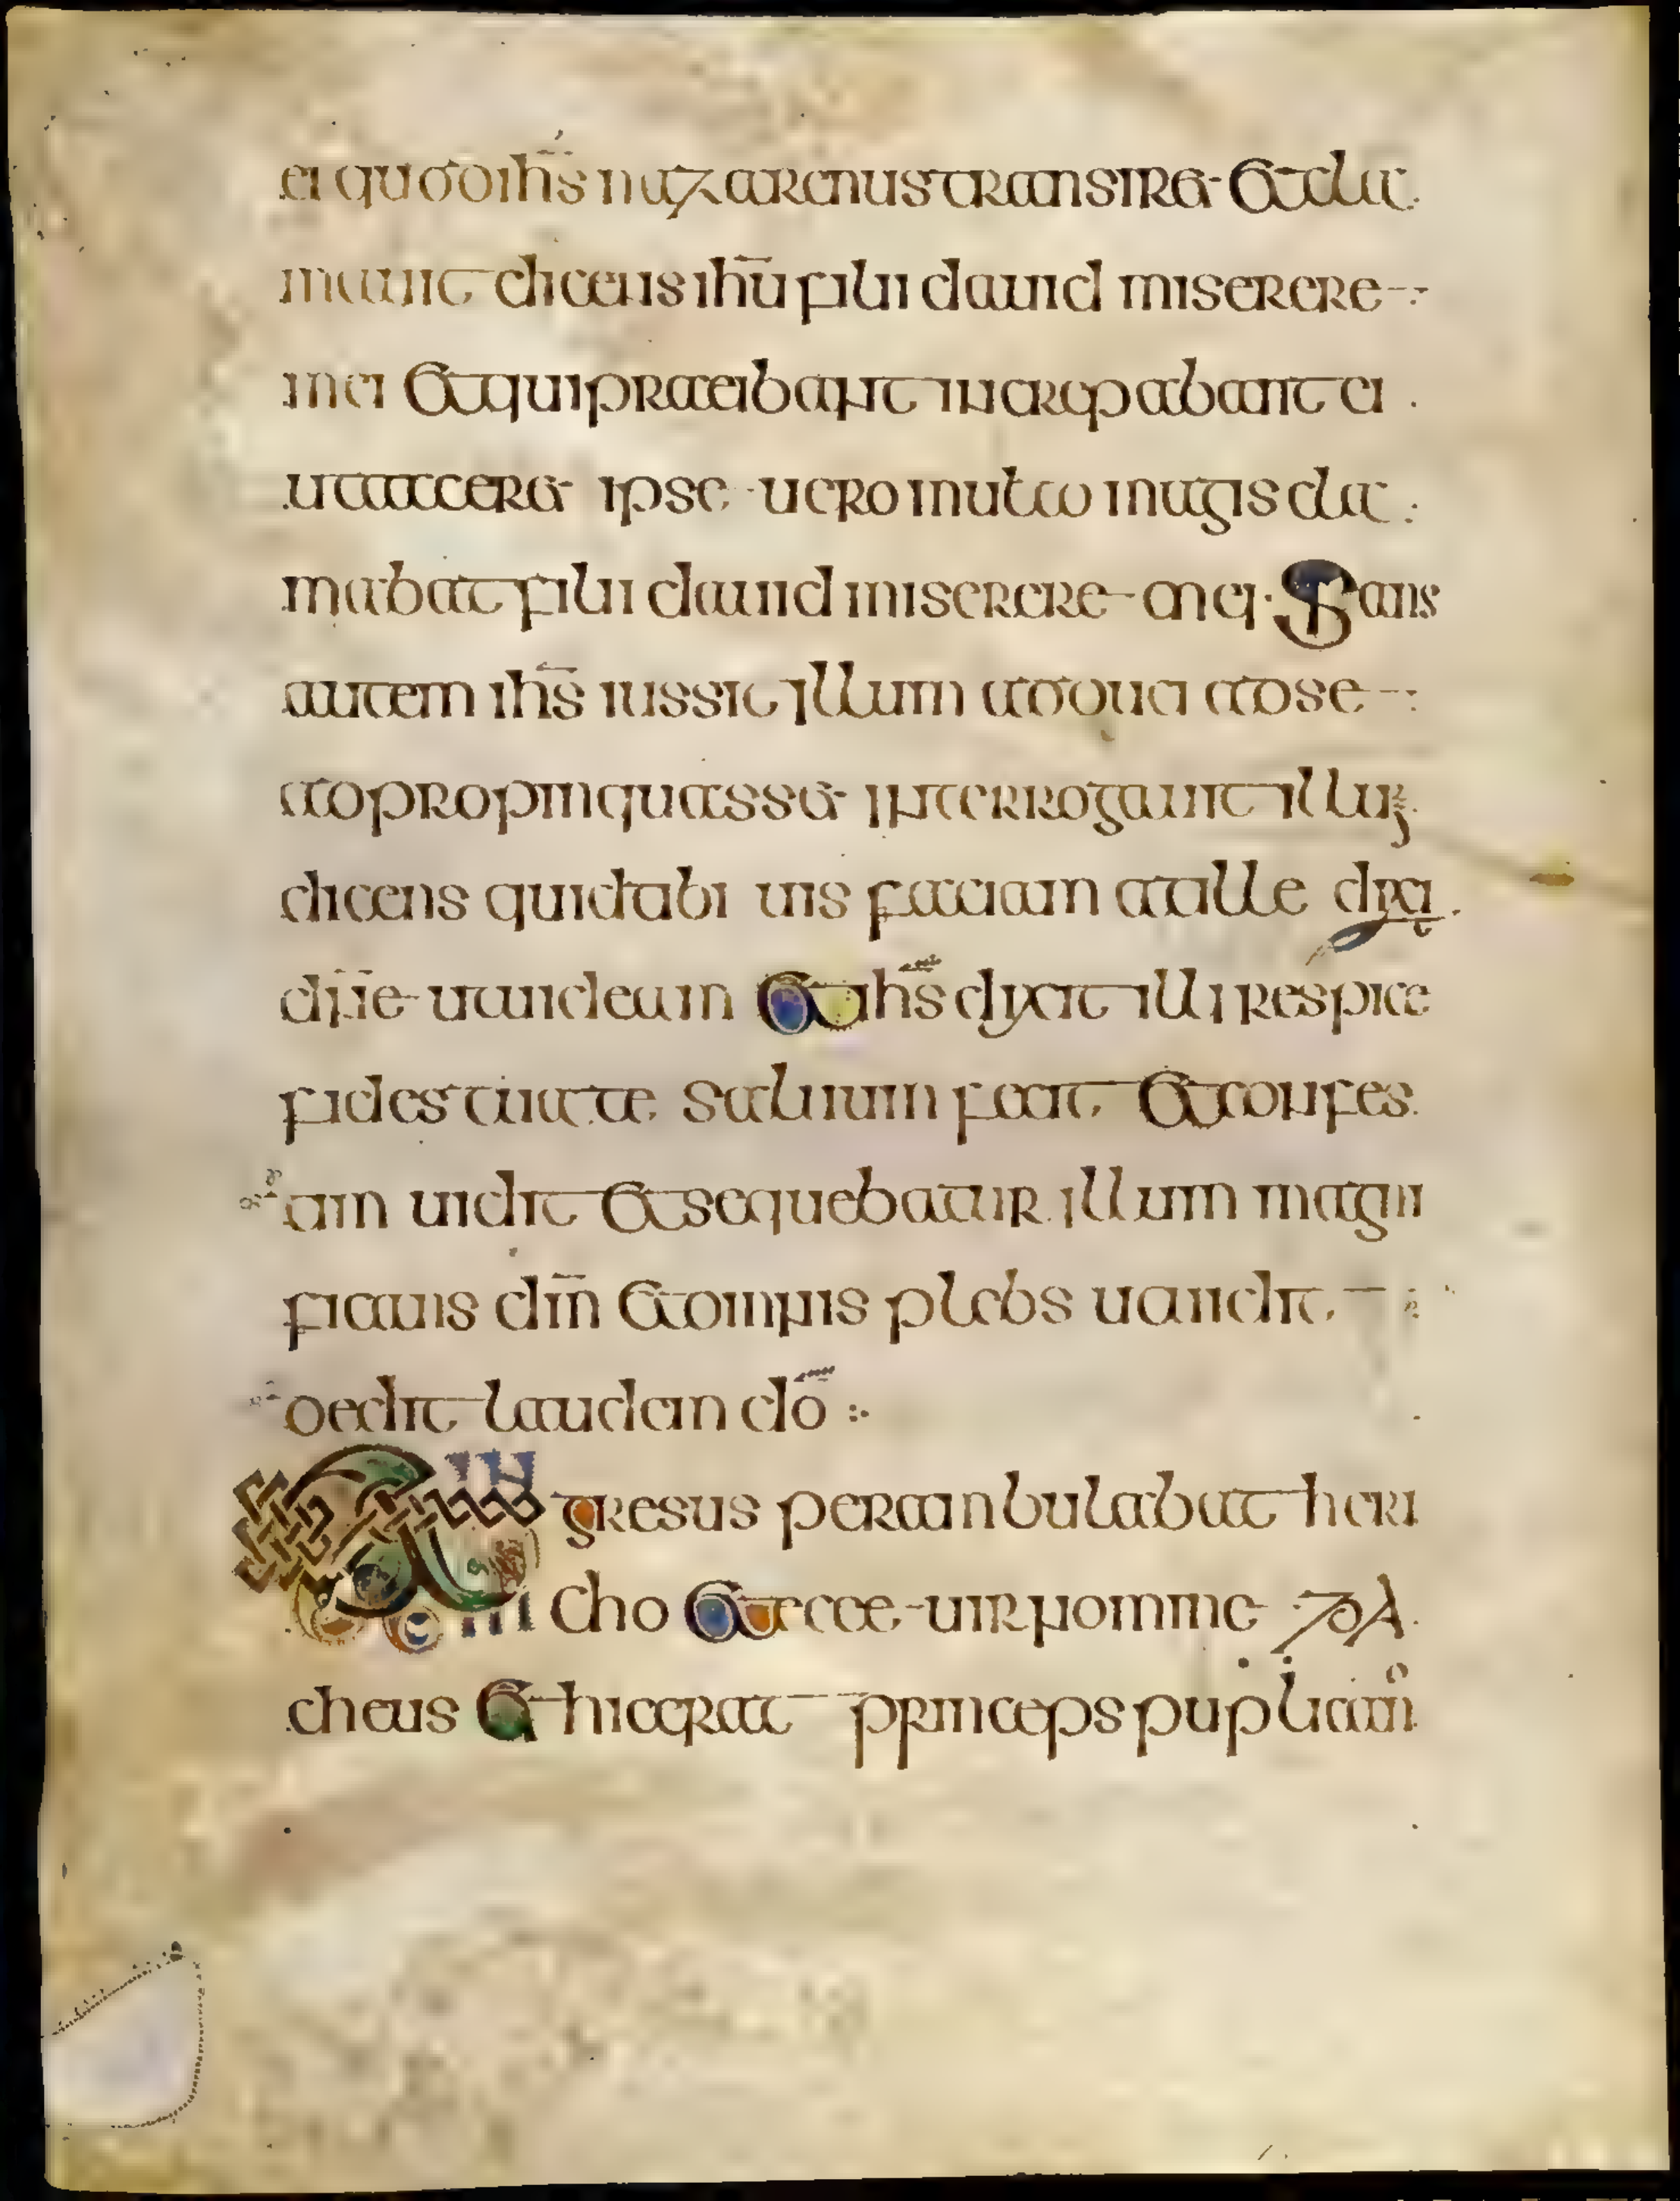 ei quod ihs nazarenus transiret Et cla
mauit dicens ihu fili dauid miserere
mei Et qui praeibant increpabant ei
ut taceret ipse uero multo magis cla
mabat fili dauid miserere mei Stans
autem ihs iussit illum adduci ad se
adpropinquasset interrogauit illum
dicens quid tibi uis faciam at ille dixit
dne ut uideam Et ihs dixit illi respice
fides tua te saluum fecit Et confes
tim uidit Et sequebatur illum magni
ficans dm Et omnis plebs ut uidit
dedit laudem do
Et in gresus perambulabat heri
cho Et ecce uir nomine zac
cheus Et hic erat princeps puplicanorum